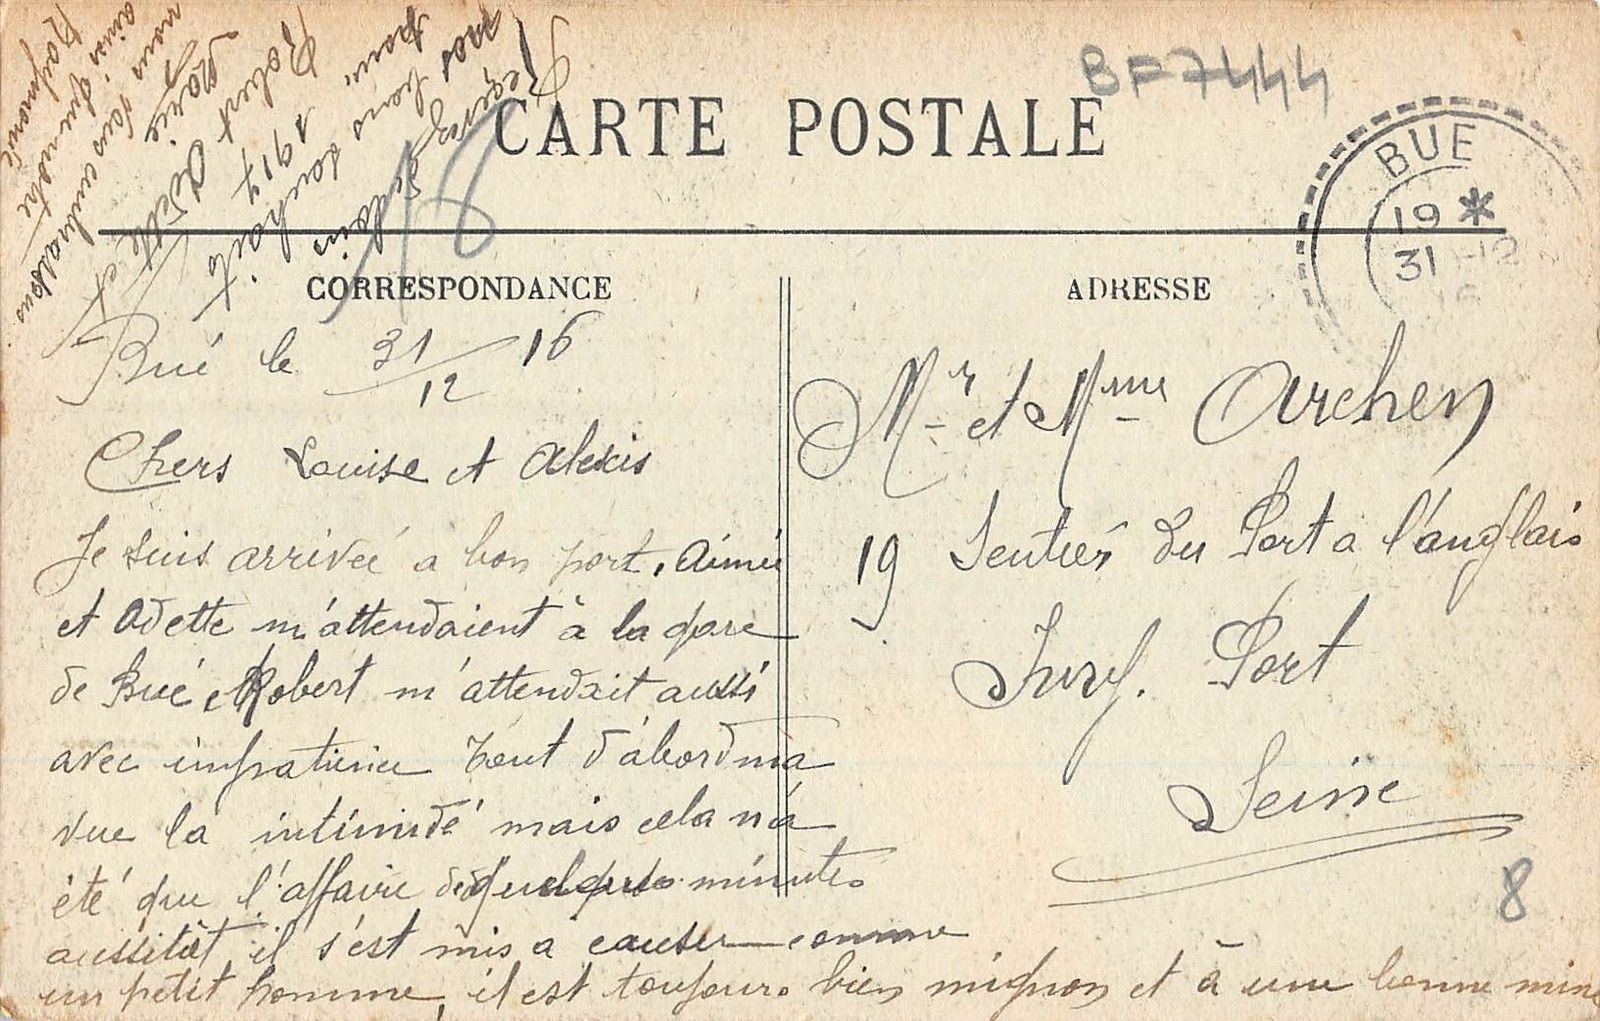 BF7444
CARTE POSTALE
BUE
19 *
31 -12
16
CORRESPONDANCE
ADRESSE
Bué le 31/12 16
Chers Louise et Alexis
Je suis arriveé a bon port, Aimée
et Odette m'attendaient à la gare
de Bué et Robert m'attendait aussi
avec impatience tout d'abord ma
vue la intimidé mais cela n'a
été que l'affaire de quelques minutes
aussitôt il s'est mis a causer comme
un petit homme, il est toujours bien mignon et à une bonne mine
Recevez de loin
nos bons souhaits
pour 1917
Robert Odette et
Marie
nous vous embrassons
ainsi que notre
Raymonde
18
Mr et Mme Archen
19 Sentier du Port a l'anglais
Ivry. Port
Seine
8